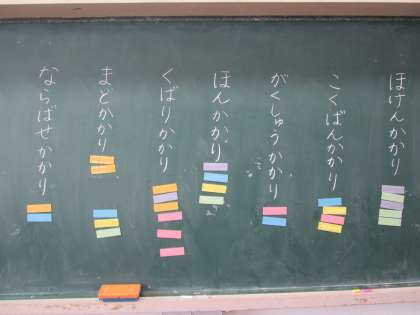 ほけんかかり
こくばんかかり
がくしゅうかかり
ほんかかり
くばりかかり
まどかかり
ならばせかかり